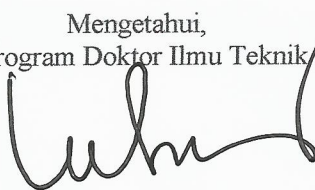 Mengetahui,
rogram Doktor Ilmu Teknik